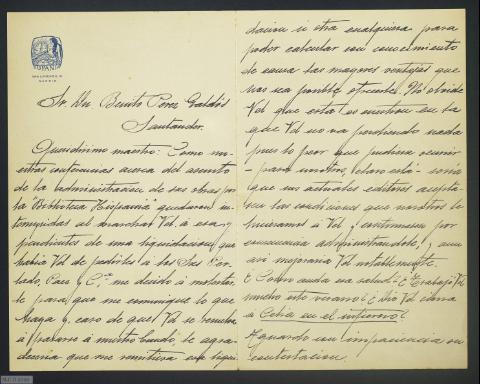 HISPANIA
MADRID
Sr. Dn. Benito Pérez Galdós
Santander.
Queridísimo maestro: Como nu-
estras conferencias acerca del asunto
de la administracion de sus obras por
la "Biblioteca Hispania" quedaron in-
terrumpidas al marchar Vd. á esa, y
pendientes de una liquidacion que
habia Vd de pedirles a los Sres Per-
lado, Paez y Cª me decido á molestar-
le para que me comunique lo que
haya y, caso de que Vd se resuelva
á pasarse á nuestro bando, le agra-
deceria que me remitiera esa liqui-
dacion ú otra cualquiera para
poder calcular con conocimiento
de causa las mayores ventajas que
nos sea posible ofrecerles. No olvide
Vd que esta es cuestion en la
que Vd no va perdiendo nada
pues lo peor que pudiera ocurrir
- para nosotros, claro está - seria
que sus actuales editores acepta-
sen las condiciones que nosotros le
hicieramos á Vd y continuasen por
consecuencia administrándole, y aun
asi mejoraria Vd notablemente.
¿Como anda esa salud? ¿Trabajó Vd
mucho este verano? ¿Dió Vd cima
a Celia en el infierno?
Aguardo con impaciencia su
contestacion.